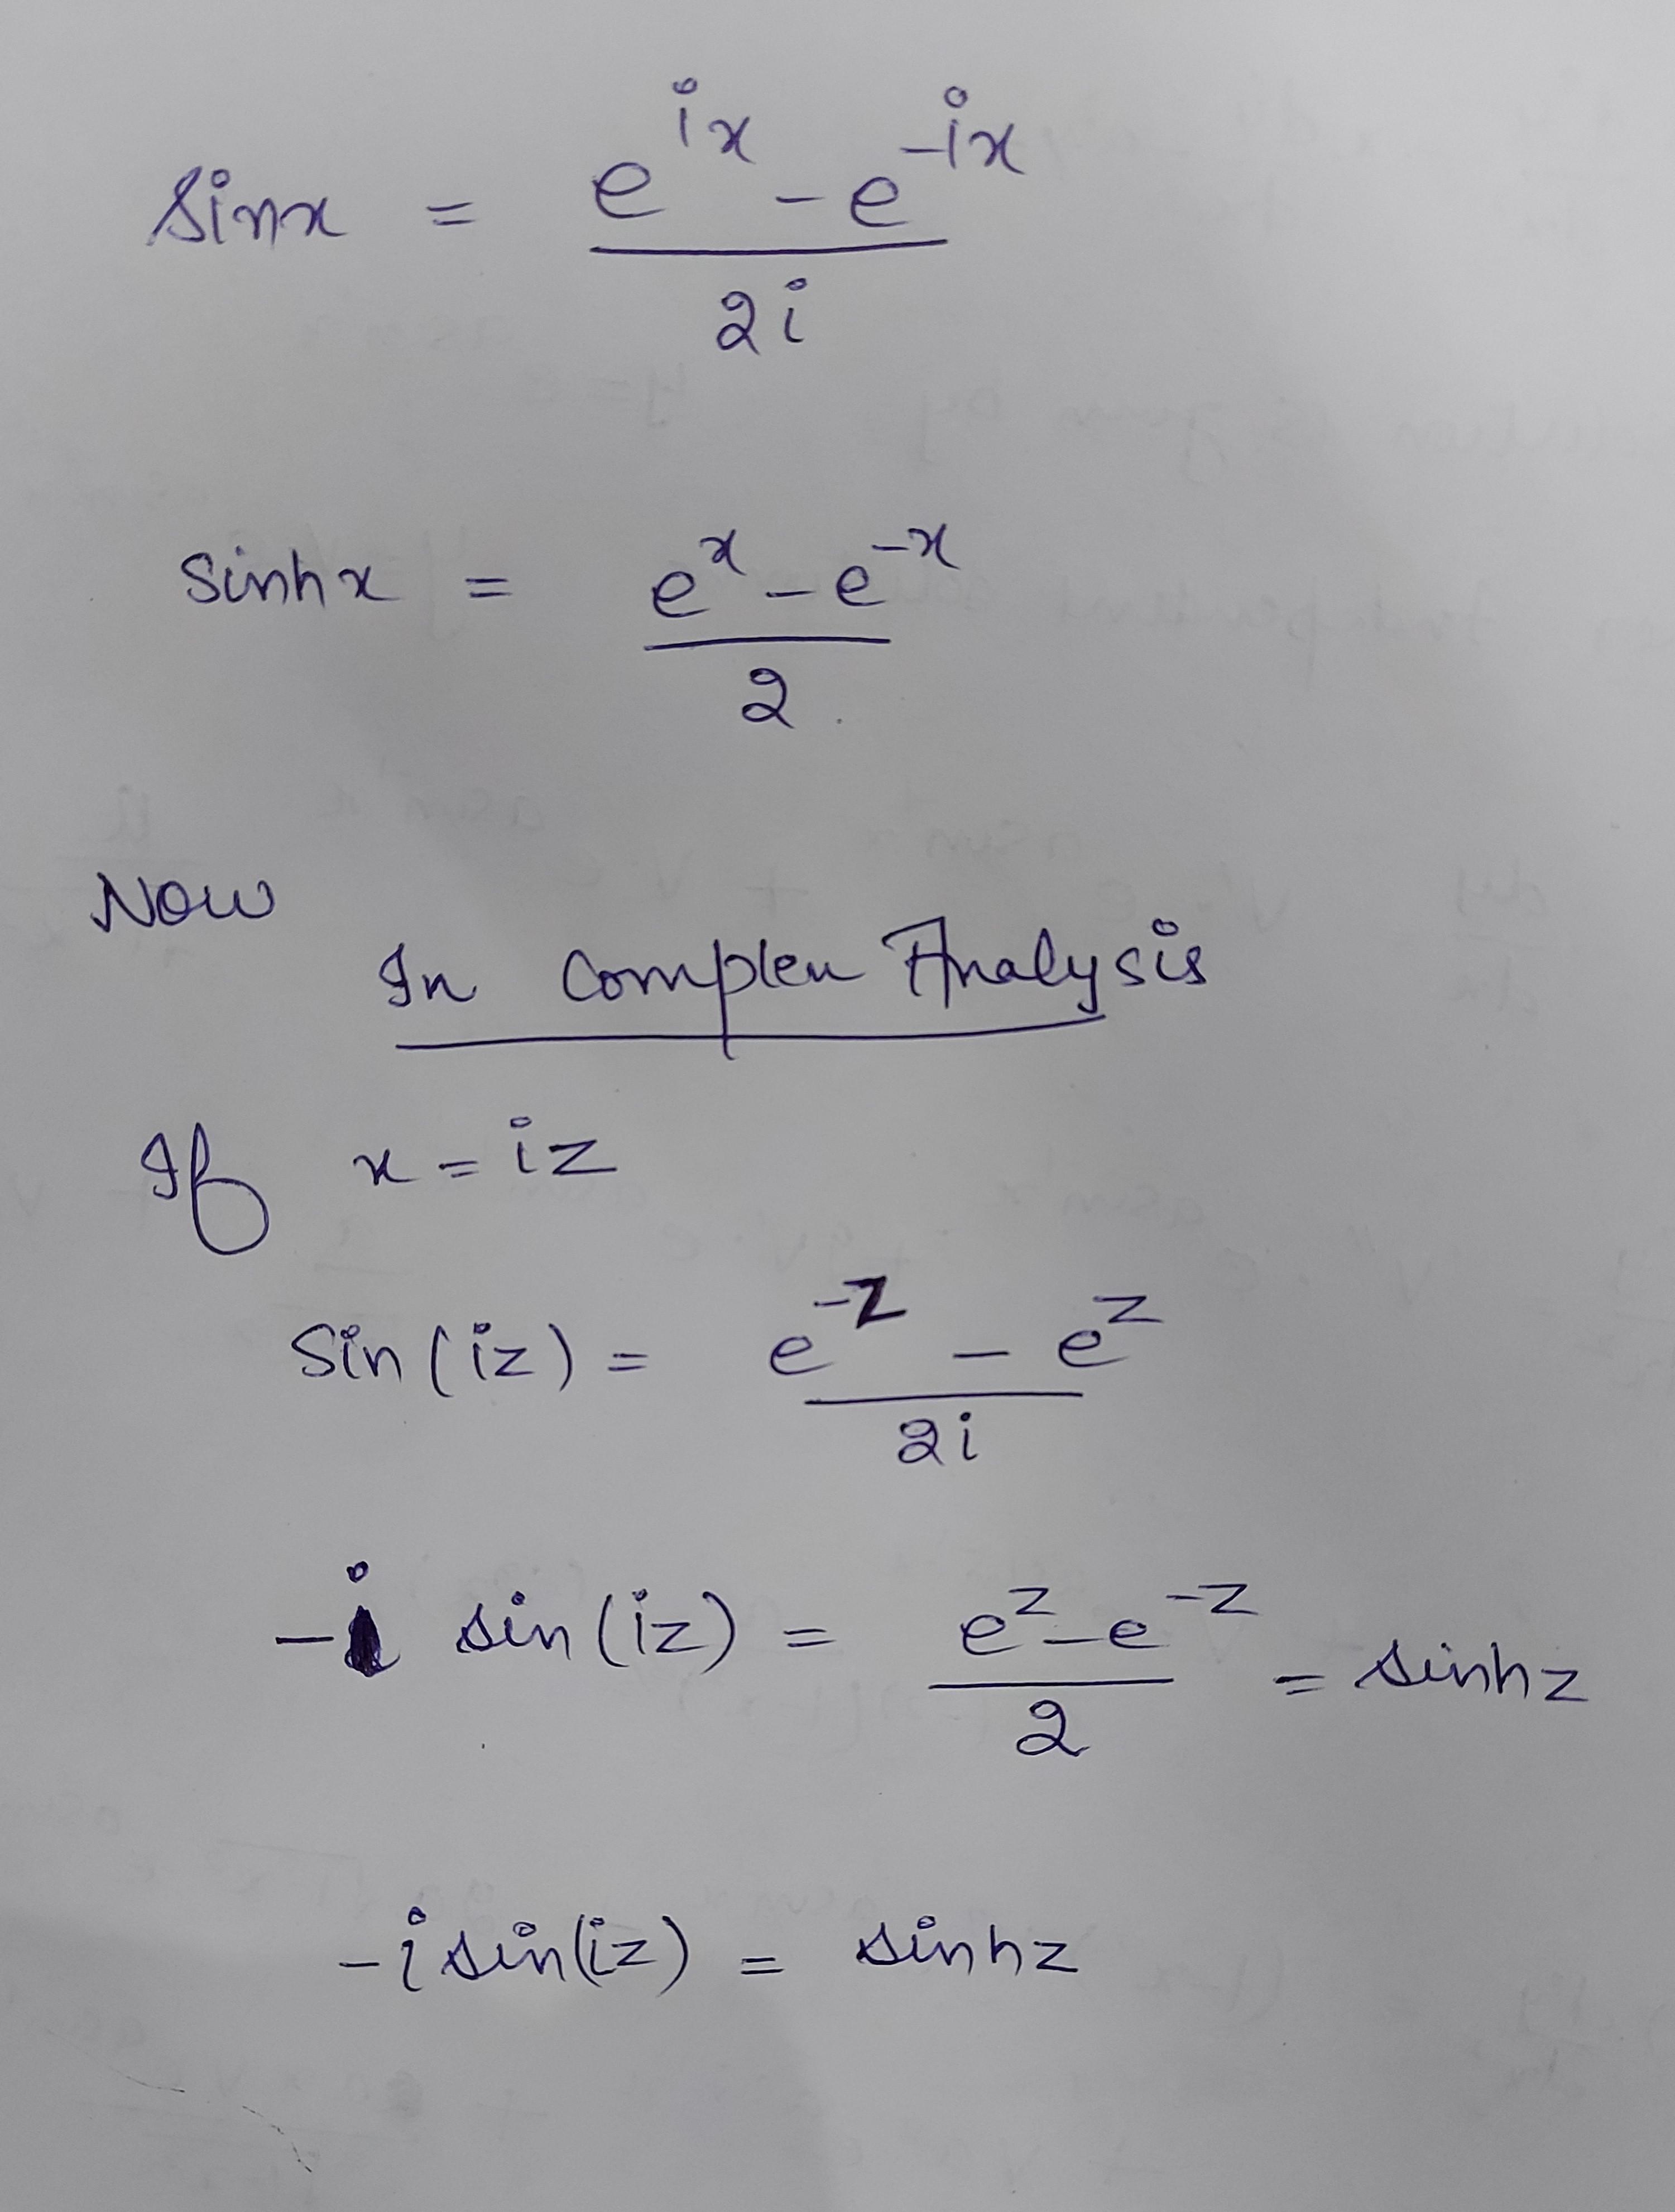 sinx = e^{ix} - e^{-ix} / 2i
sinhx = e^x - e^{-x} / 2
Now
In Complex Analysis
If x = iz
Sin(iz) = e^{-z} - e^z / 2i
-i sin(iz) = e^z - e^{-z} / 2 = sinhz
-i sin(iz) = sinhz